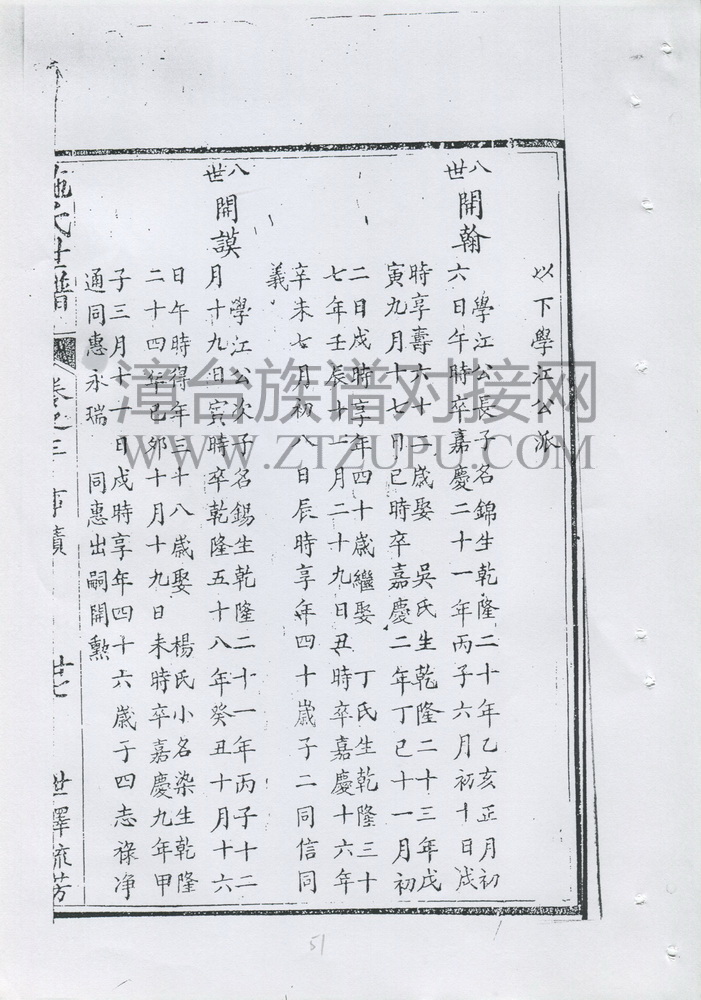 以下學江公派
八世
開翰
學江公長子名錦生乾隆二十年乙亥正月初
六日午時卒嘉慶二十一年丙子六月初十日戌
時享壽六十二歲娶 吳氏生乾隆二十三年戊
寅九月十七月巳時卒嘉慶二年丁巳十一月初
二日戌時享年四十歲繼娶 丁氏生乾隆三十
七年壬辰十二月二十九日丑時卒嘉慶十六年
辛未七月初八日辰時享年四十歲子二同信同
義
八世
開謨
學江公次子名錫生乾隆二十一年丙子十二
月十九日寅時卒乾隆五十八年癸丑十月十六
日午時得年三十八歲娶 楊氏小名染生乾隆
二十四年己卯十月十九日未時卒嘉慶九年甲
子三月十一日戌時享年四十六歲子四志祿净
通同惠永瑞 同惠出嗣開勲
施氏世譜
卷之三 事蹟
世澤流芳
51
漳台族谱对接网
WWW.ZTZUPU.COM